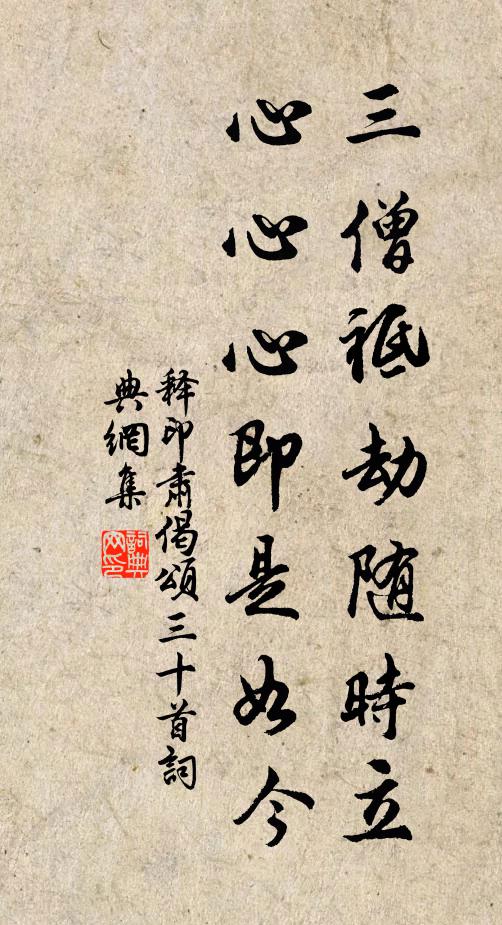 三僧祇劫随時立
心心心即是如今
释印肅偈頌三十首詞
典網集
詞典网印